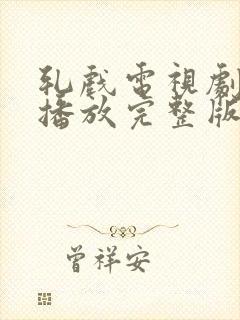 乱戲電視劇
播放完整版
曾祥安